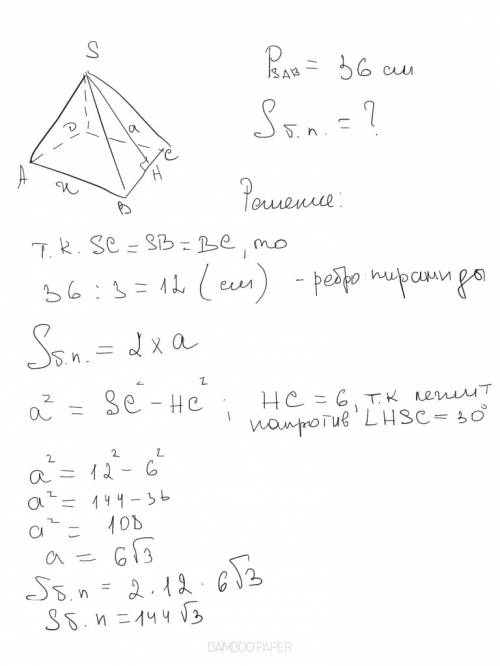 S
D
a
C
A
H
x
B
P SAB = 36 см
Sб.п. = ?
Решение:
т.к. SC = SB = BC, то
36 : 3 = 12 (см) - ребро пирамиды
Sб.п. = 2 x a
a² = SC² - HC² ; HC = 6, т.к лежит
напротив ∠HSC = 30°
a² = 12² - 6²
a² = 144 - 36
a² = 108
a = 6√3
Sб.п = 2 · 12 · 6√3
Sб.п = 144√3
BAMBOOPAPER